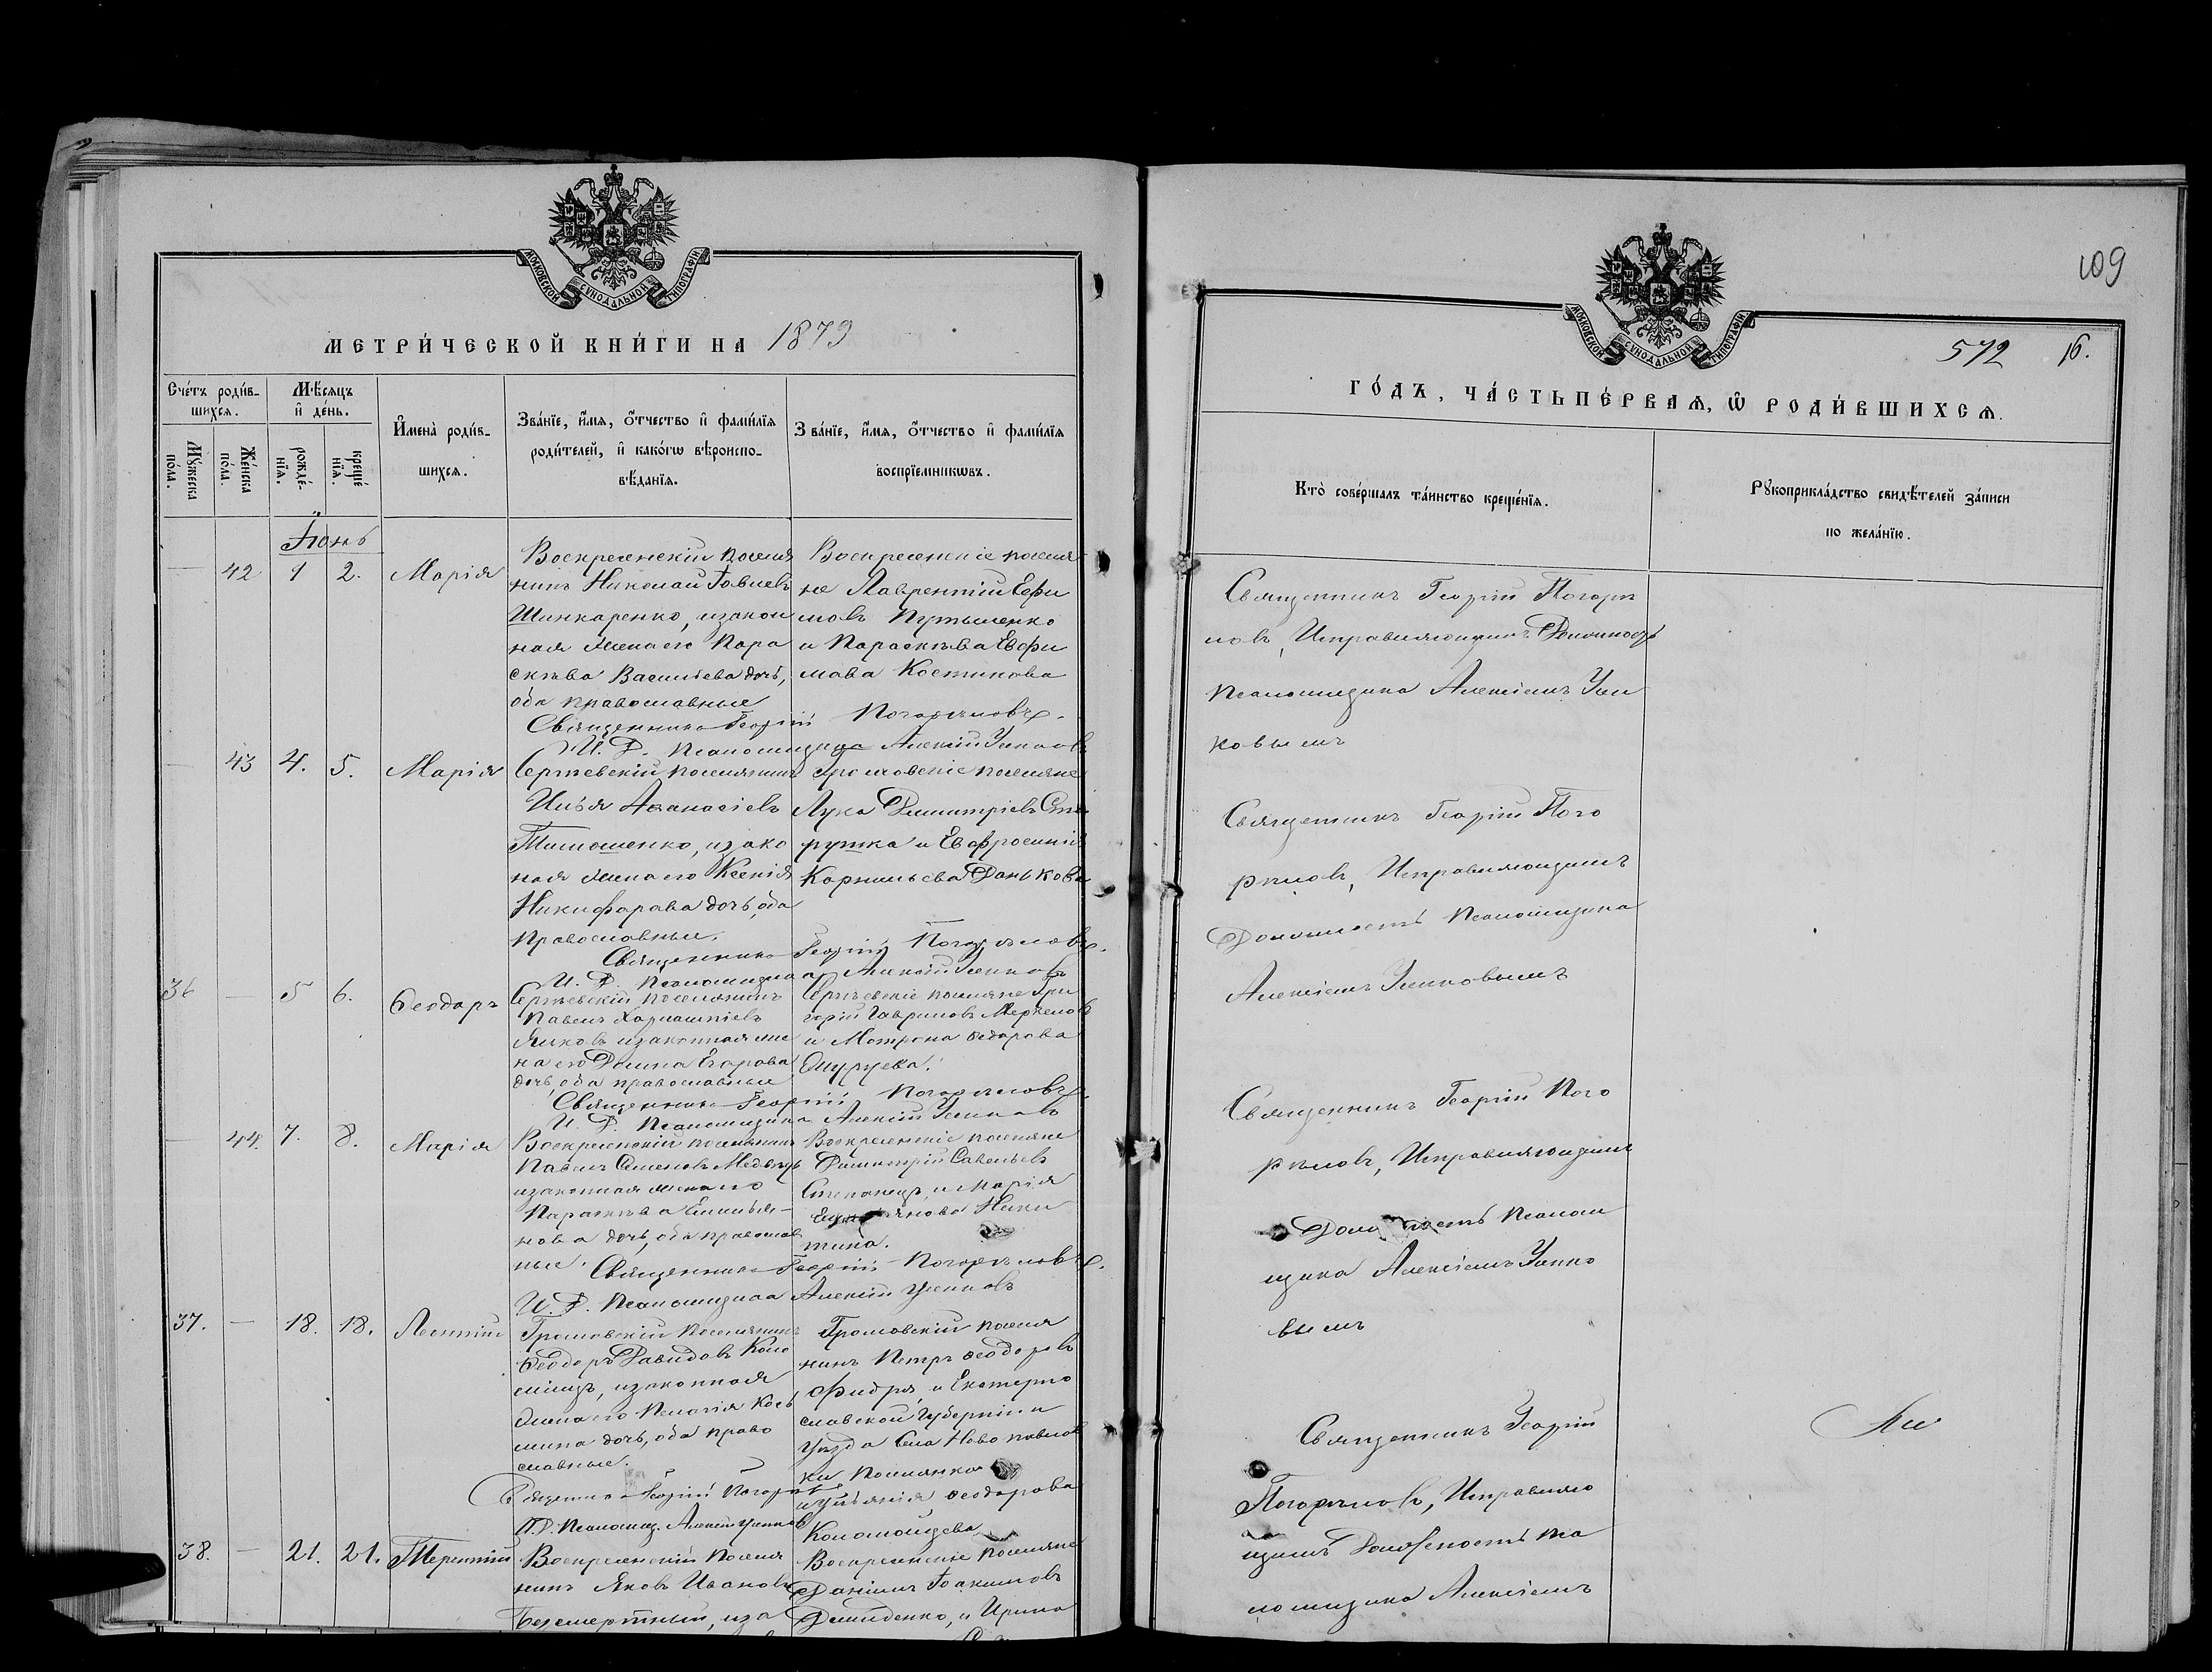 МОСКОВСКОЙ СѴНОДАЛЬНОЙ ТИПОГРАФІИ
МЕТРИ́ЧЕСКОЙ КНИ́ГИ НА 1879
Сче́тъ роди́в-
шихся.
Мѣ́сяцъ
и҆ де́нь.
Мꙋ́жеска
по́ла.
Же́нска
по́ла.
рожде́-
нїя.
креще́
нїя.
И҆мена̀ роди́в-
шихся.
Зва́нїе, и҆́мя, ѻ҆́тчество и҆ фами́лїя
роди́телей, и҆ како́гѡ вѣроиспо-
вѣ́данїя.
Зва́нїе, и҆́мя, ѻ҆́тчество и҆ фами́лїя
воспрїе́мникѡвъ.
Іюнь
— 42 1 2. Марія
Воскресенскій поселя
нинъ Николай Іовлевъ
Шинкаренко, изакон
ная жена его Пара
скева Васильева дочь,
оба православные
Воскресенскіе поселя
не Лаврентій Ефи
мовъ
и Параскѣва Евфи
мова Костикова
Священникъ Георгій Погорѣловъ.
И. Д. Псаломщика Алексій
— 43 4. 5. Марія
Сергѣевскій поселянинъ
Илья Аѳанасіевъ
Тимошенко, изако
ная жена его Ксенія
Никифорова дочь, оба
православные.
Громовскіе поселяне
Лука Димитріевъ
и Евфросинія
Корнильева Данькова
Священникъ Георгій Погорѣловъ.
И. Д. Псаломщика Алексій
36 — 5 6. Ѳеодоръ
Сергѣевскій поселянинъ
Павелъ
изаконная же
на его Домна Егорова
дочь, оба православные
Сергѣевскіе поселяне Гри
горій Гавриловъ
и Матрона Ѳедорова
Священникъ Георгій Погорѣловъ.
И. Д. Псаломщика Алексій
— 44. 7. 8. Марія
Воскресенскій поселянинъ
Павелъ Семеновъ Медвѣдь
изаконная жена его
Параскева Емилья-
нова дочь, оба православ
ные.
Воскресенскіе поселяне
Димитрій Савельевъ
Степанецъ, и Марія
Ники
тина.
Священникъ Георгій Погорѣловъ.
И. Д. Псаломщика Алексій
37. — 18. 18. Леонтій
Громовскій поселянинъ
Ѳеодоръ Давидовъ Коло
міецъ, изаконная
жена его Пелагія Кось
мина дочь, оба право
славные.
Громовскій поселя
нинъ Петръ Ѳеодоровъ
и Екатерино
славской Губерніи и
уѣзда Села Новопавлов
ки поселянка
Ѳеодорова
Коломойцева
Священникъ Георгій
И. Д. Псаломщ. Алексій
38. — 21. 21. Терентій
Воскресенскій поселя
нинъ Яковъ Ивановъ
Безсмертный, иза
Воскресенскіе поселяне
Даніилъ Іоакимовъ
Демиденко, и Ирина
109
МОСКОВСКОЙ СѴНОДАЛЬНОЙ ТИПОГРАФІИ
572 16.
ГО́ДЪ, ЧА́СТЬ ПЕ́РВАЯ, Ѡ҆ РОДИ́ВШИХСЯ.
Кто̀ соверша́лъ та́инство креще́нїя.
Рꙋкоприкла́дство свидѣ́телей за́писи
по жела́нїю.
Священникъ Георгій Погорѣ
ловъ, Исправляющимъ Должность
Псаломщика Алексіемъ
ковымъ
Священникъ Георгій Пого
рѣловъ, Исправляющимъ
Должность Псаломщика
Алексіемъ
Священникъ Георгій Пого
рѣловъ, Исправляющимъ
Должность Псалом
щика Алексіемъ
вымъ
Священникъ Георгій
Погорѣловъ, Исправляю
щимъ Должность Пса
ломщика Алексіемъ